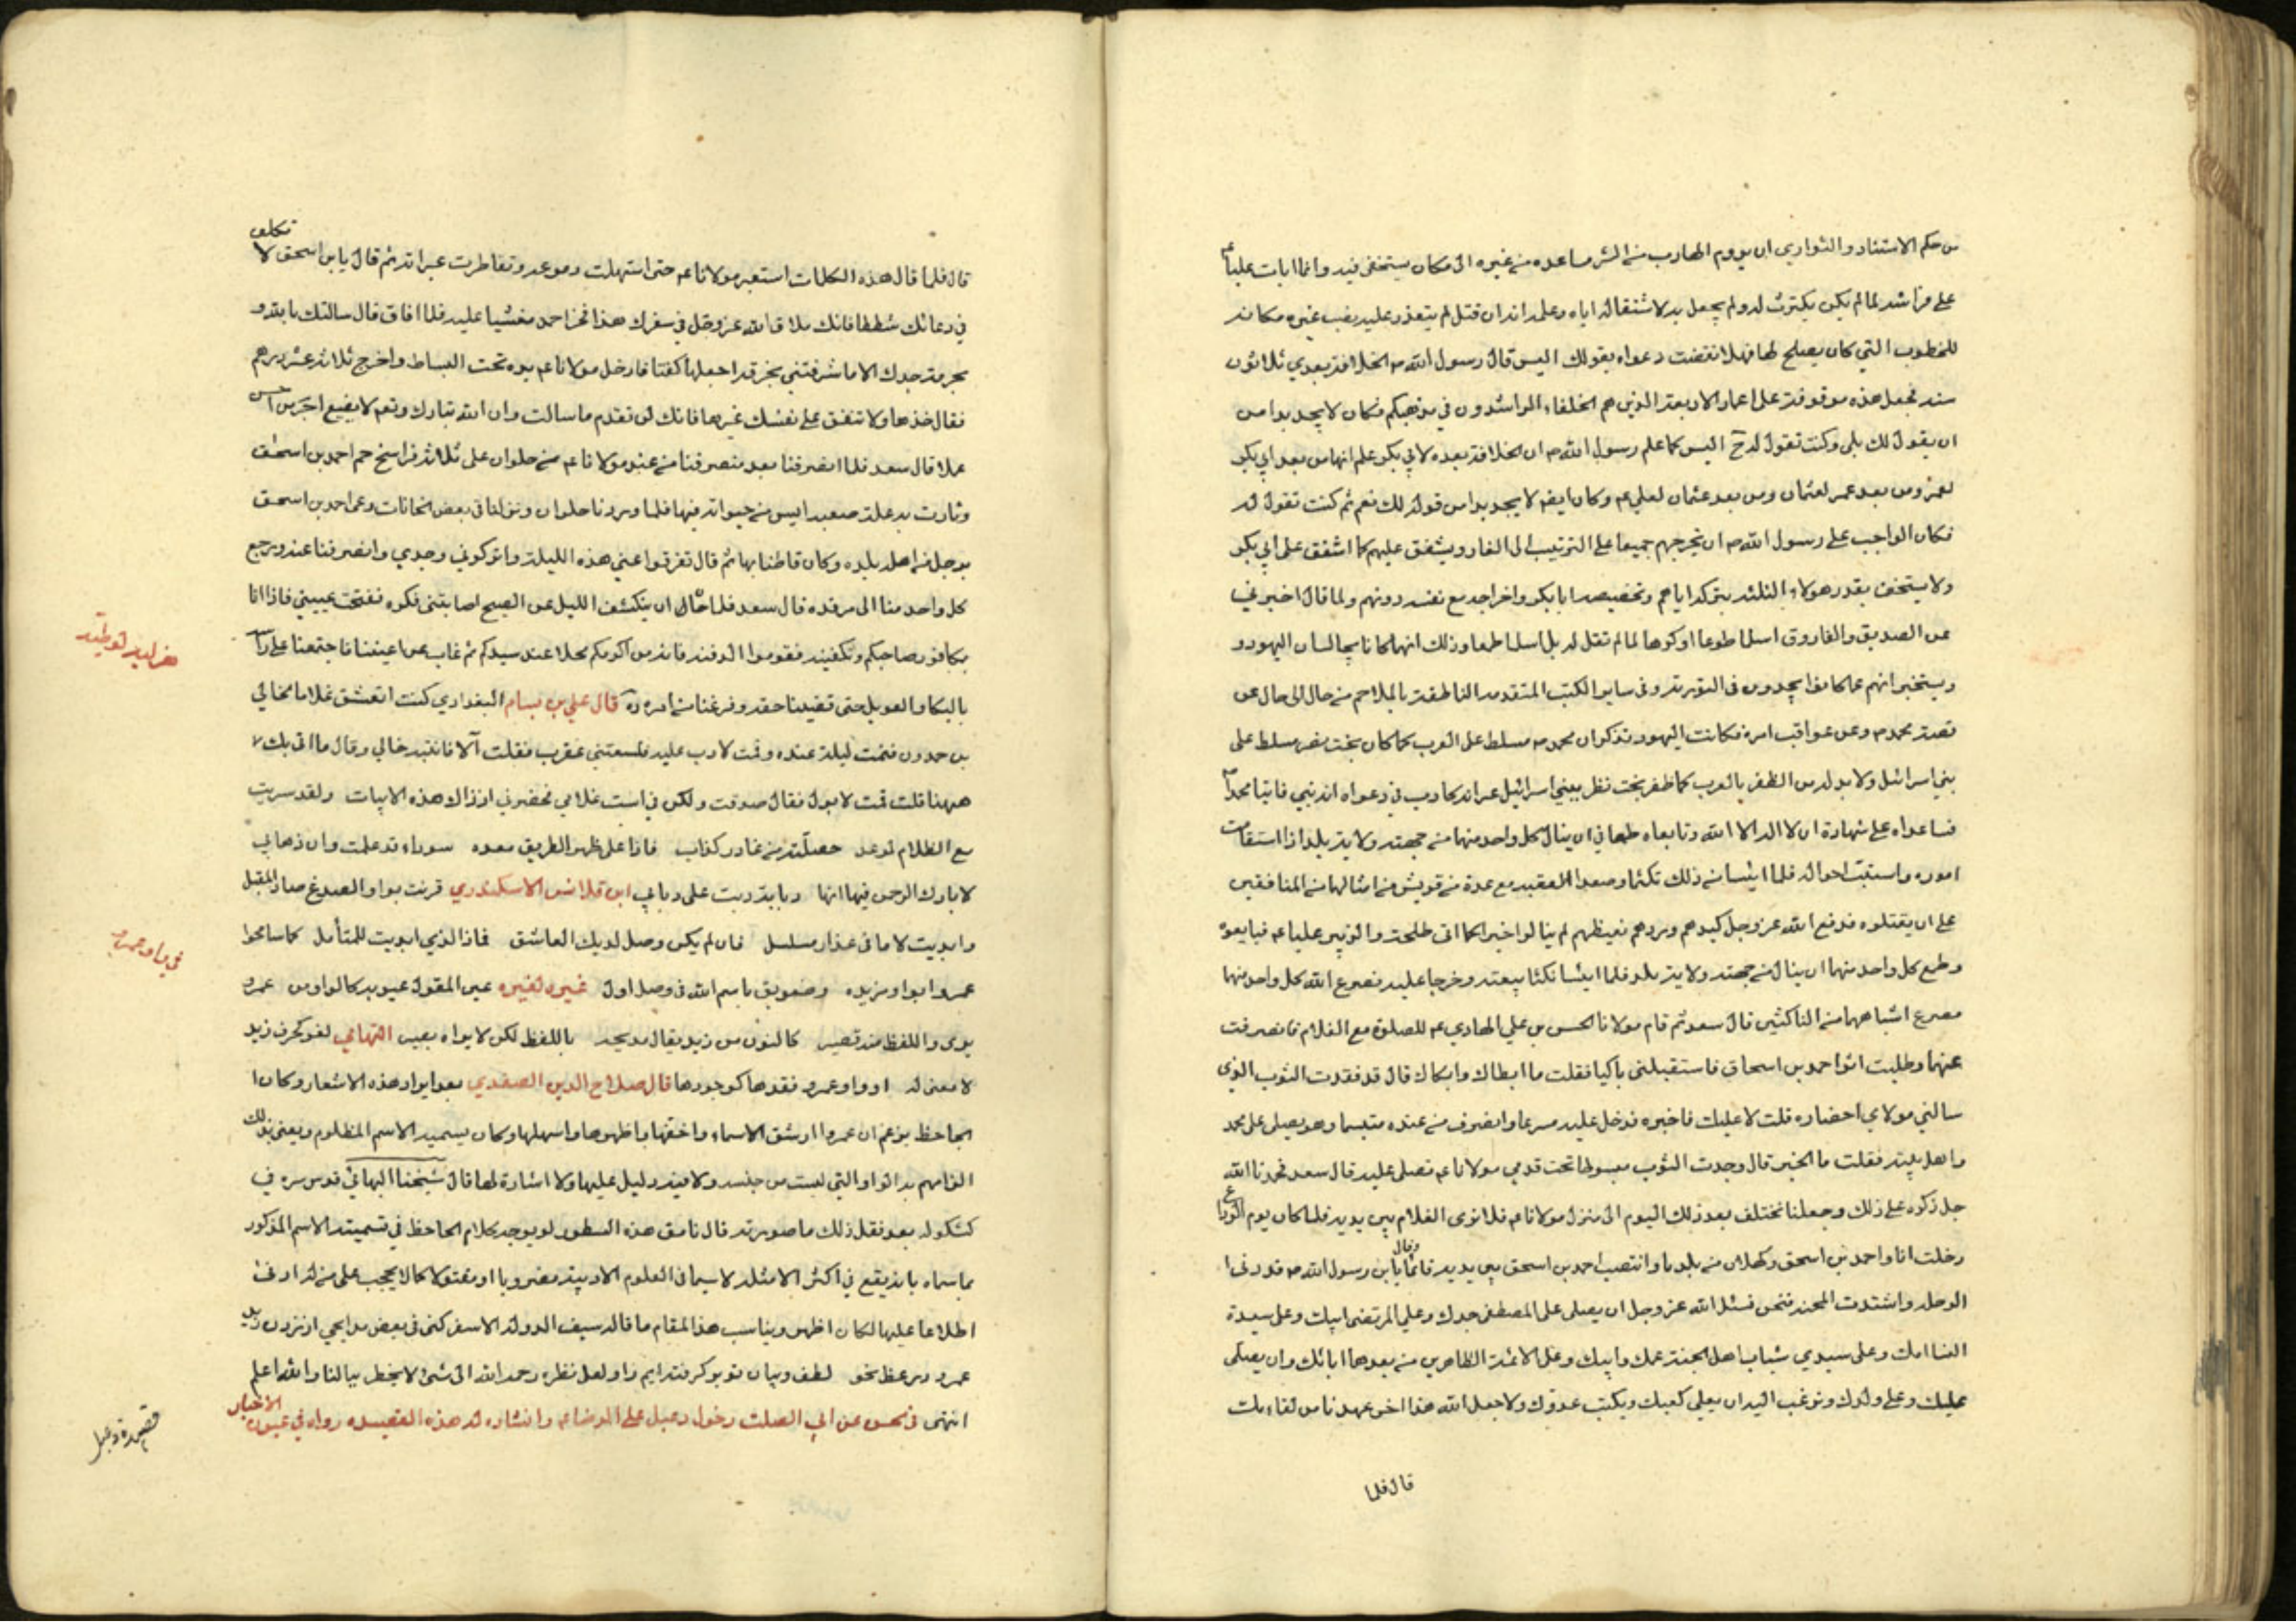 من حكم الاستتار والتواري ان يروم الهارب من الشر مساعدة من غيره الى مكان يستخفى فيه وانما ابات عليا ع
على فراشه لما لم يكن يكترث له ولم يحفل به لاستثقاله اياه وعلمه انه ان قتل لم يتعذر عليه نصب غيره مكانه
للخطوب التي كان يصلح لها فهلا نقضت دعواه بقولك اليس قال رسول الله ص الخلافة بعدي ثلاثون
سنة فجعل هذه موقوفة على اعمار الاربعة الذين هم الخلفاء الراشدون في مذهبكم فكان لا يجد بدا من
ان يقول لك بلى وكنت تقول له ح اليس كما علم رسول الله ص ان الخلافة بعده لابي بكر علم انها من بعد ابي بكر
لعمر ومن بعد عمر لعثمان ومن بعد عثمان لعلي ع وكان ايضا لا يجد بدا من قوله لك نعم ثم كنت تقول له
فكان الواجب على رسول الله ص ان يخرجهم جميعا على الترتيب الى الغار ويشفق عليهم كما اشفق على ابي بكر
ولا يستخف بقدر هولاء الثلثة بتركه اياهم وتخصيصه ابا بكر واخراجه مع نفسه دونهم ولما قال اخبرني
عن الصديق والفاروق اسلما طوعا او كرها لما لم تقل له بل اسلما طمعا وذلك انهما كانا يجالسان اليهود و
ويستخبرانهم عما كانوا يجدون في التورية وفي ساير الكتب المتقدمة الناطقة بالملاحم من حال الى حال عن
قصة محمد ص وعن عواقب امره فكانت اليهود تذكر ان محمد ص مسلط على العرب كما كان بخت نصر مسلط على
بني اسرائيل ولا بد له من الظفر بالعرب كما ظفر بخت نظر ببني اسرائيل غير انه كاذب في دعواه انه نبي فاتيا محمدا ص
فساعداه على شهادة ان لا اله الا الله وتابعاه طمعا في ان ينال كل واحد منهما من جهته ولاية بلد اذا استقامت
اموره واستتبت احواله فلما ايسا من ذلك تلثما وصعدا العقبة مع عدة من قريش من امثالهما من المنافقين
على ان يقتلوه فدفع الله عز وجل كيدهم وردهم بغيظهم لم ينالوا خيرا كما اتى طلحة والزبير عليا ع فبايعوه
وطمع كل واحد منهما ان ينال من جهته ولاية بلد فلما ايسا نكثا بيعته وخرجا عليه فصرع الله كل واحد منهما
مصرع اشباههما من الناكثين قال سعد ثم قام مولانا الحسن بن علي الهادي ع للصلوة مع الغلام فانصرفت
عنهما وطلبت اثر احمد بن اسحاق فاستقبلني باكيا فقلت ما ابطاك وابكاك قال قد فقدت الثوب الذي
سالني مولاي احضاره قلت لا عليك فاخبره فدخل عليه مسرعا وانصرف من عنده متبسما وهو يصلى على محمد
واهل بيته فقلت ما الخبر قال وجدت الثوب مبسوطا تحت قدمي مولانا ع نصلى عليه قال سعد فحمدنا الله
جل ذكره على ذلك وجعلنا نختلف بعد ذلك اليوم الى منزل مولانا ع فلا نرى الغلام بين يديه فلما كان يوم الوداع
دخلت انا واحمد بن اسحق وكهلان من بلدنا وانتصب احمد بن اسحق بين يديه قائما وقال يا بن رسول الله ص قد دنا
الرحلة واشتدت المحنة فنحن نسئل الله عز وجل ان يصلى على المصطفى جدك وعلى المرتضى ابيك وعلى سيدة
النسا امك وعلى سيدي شباب اهل الجنة عمك وابيك وعلى الائمة الطاهرين من بعدهما ابائك وان يصلى
عليك وعلى ولدك ونرغب اليه ان يعلى كعبك ويكبت عدوك ولا جعل الله هذا اخر عهدنا من لقاءك
قال فلما
قال فلما قال هذه الكلمات استعبر مولانا ع حتى استهلت دموعه وتقاطرت عبراته ثم قال يا بن اسحق لا تكلف
في دعائك شططا فانك ملاق الله عز وجل في سفرك هذا فخر احمد مغشيا عليه فلما افاق قال سالتك بالله و
بحرمة جدك الا ما شرفتني بخرقة اجعلها كفنا فادخل مولانا ع يده تحت البساط واخرج ثلاثة عشر درهم
فقال خذها ولا تنفق على نفسك غيرها فانك لن تعدم ما سالت وان الله تبارك وتعم لا يضيع اجر من احسن
عملا قال سعد فلما انصرفنا بعد منصرفنا من عند مولانا ع من حلوان على ثلاثة فراسخ حم احمد بن اسحق
وثارت به علة صعبة ايس من حيواته فيها فلما وردنا حلوان ونزلنا في بعض الخانات دعى احمد بن اسحق
برجل من اهل بلده وكان قاطنا بها ثم قال تفرقوا عني هذه الليلة واتركوني وحدي وانصرفنا عنه ورجع
كل واحد منا الى مرقده قال سعد فلما حان ان ينكشف الليل عن الصبح اصابتني فكرة ففتحت عيني فاذا انا
بكافور
صاحبكم وتكفينه فقوموا لدفنه فانه من اكرمكم محلا عند سيدكم ثم غاب عن اعيننا فاجتمعنا على راسه
بالبكا والعويل حتى قضينا حقه وفرغنا من امره ره قال علي بن بسام البغدادي كنت اتعشق غلاما لخالي
بن حمدون فنمت ليلة عنده وقمت لادب عليه فلسعتني عقرب فقلت آه فانتبه خالي وقال ما اتى بك
ههنا قلت قمت لابول فقال صدقت ولكن في است غلامي فحضرني اذ ذاك هذه الابيات ولقد سريت
مع الظلام لموعد حصلته من غادر كذاب فاذا على ظهر الطريق معده سوداء قد علمت وان ذهابي
لا بارك الرحمن فيها انها دبابة دبت على دباب ابن قلانس الاسكندري قرنت بواو الصدغ صاد المقبل
وابديت لاما في عذار مسلسل فان لم يكن وصل لديك العاشق فماذا الذي ابديت للمتأمل كما سامحوا
عمروا بواو مزيده وضويق باسم الله في وصل اول غيره لغيره عين المقول عيوبه كالواو من عمرو
يرى واللفظ منه قصير كالنون من زيد يقال مديحه باللفظ لكن لا يراه بصير التهامي لغو كحرف زيد
لا معنى له او واو عمرو فقدها كوجودها قال صلاح الدين الصفدي بعد ايراد هذه الاشعار وكان ا
الجاحظ يزعم ان عمروا ارشق الاسماء واخفها واظهرها واسهلها وكان يسميه الاسم المظلوم ويعني بذلك
الزامهم به الواو التي ليست من جنسه ولا فيه دليل عليها ولا اشارة لها قال شيخنا البهائي قدس سره في
كشكوله بعد نقل ذلك ما صورته قال نامق هذه السطور لو يوجه كلام الجاحظ في تسميته الاسم المذكور
بما سماه بانه يقع في اكثر الامثله لا سيما في العلوم الادبية مضروبا او مقتولا كما لا يحجب على من له ادنى
اطلاعا عليها لكان اظهر ويناسب هذا المقام ما قاله سيف الدوله الاسفر
عمرو
انتهى في حسن عن ابي الصلت دخول دعبل على الرضا ع وانشاده له هذه القصيده رواه في عيون الاخبار
في واو عمرو
قصيدة دعبل